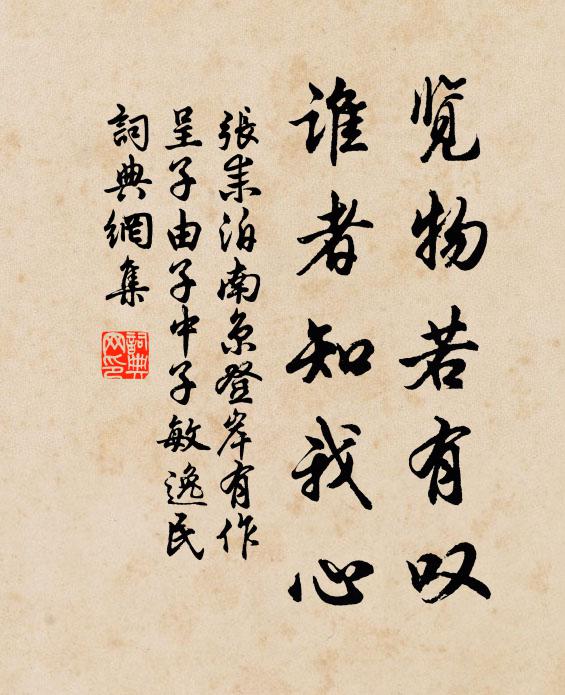 览物若有叹
谁者知我心
張耒泊南京登岸有作
呈子由子中子敏逸民
詞典網集
詞典
网印